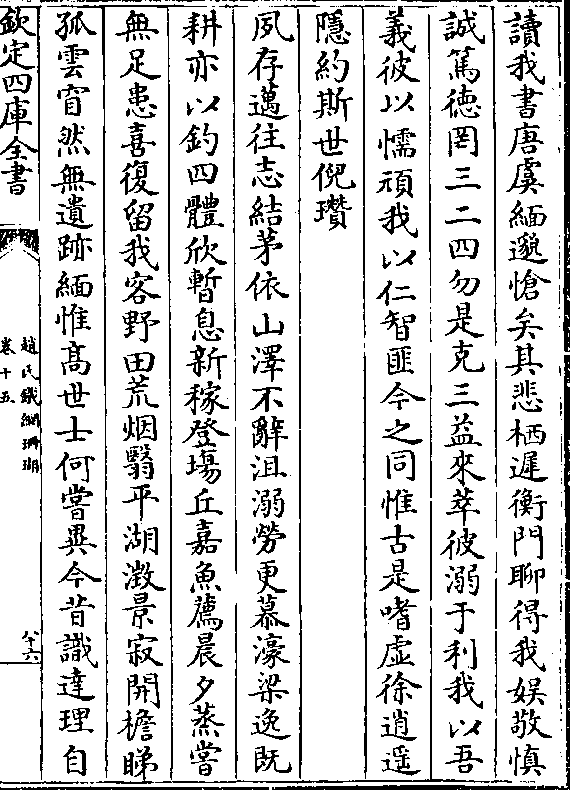 讀我書唐虞緬邈愴矣其悲栖遲衡門聊得我娱敬慎
誠篤德罔三二四勿是克三益來萃彼溺于利我以吾
義彼以懦頑我以仁智匪今之同惟古是嗜虛徐逍遥
隱約斯世倪瓚
夙存邁往志結茅依山澤不辭沮溺勞更慕濠梁逸既
耕亦以釣四體欣暫息新稼登塲丘嘉魚薦晨夕蒸嘗
無足患喜復留我客野田荒烟翳平湖澂景寂開檐睇
孤雲窅然無遺跡緬惟髙世士何嘗異今昔識達理自
欽定四庫全書
趙氏鐵網珊瑚
卷十五
六